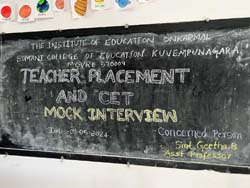 THE INSTITUTE OF EDUCATION ONKARMAL
SOMANI COLLEGE OF EDUCATION KUVEMPUNAGARA,
MYSURE 570009
TEACHER PLACEMENT
AND CET
MOCK INTERVIEW
-05-2024
Concerned Person
Smt Geetha.B
Asst Professor